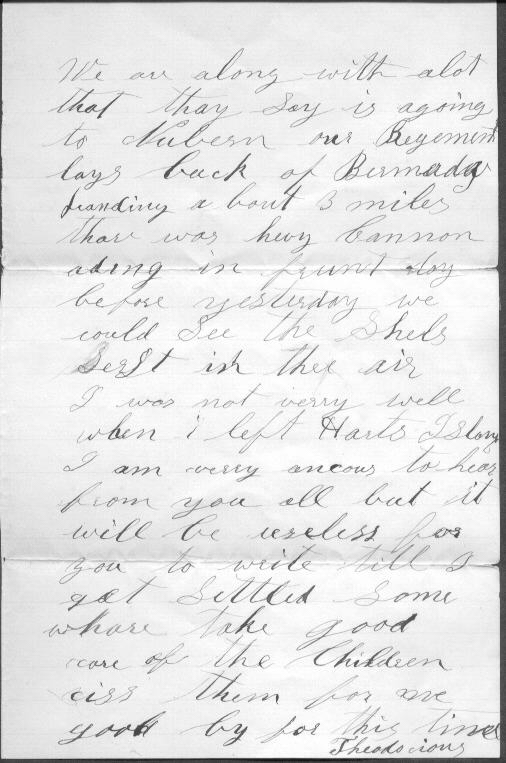 We are along with alot
that thay Say is agoing
to Nubern our Regement
lays back of Bermuda
handing a bout 3 miles
thare was hevy Cannon
ading in frunt day
before yesterday we
could See the Shels
Berst in thee air
I was not verry well
when i left Harts Island
I am verry ancous to hear
from you all but it
will be useless for
you to write till I
get Settled Some
whare take good
care of the Children
ciss them for me
good by for this time
Theodocious